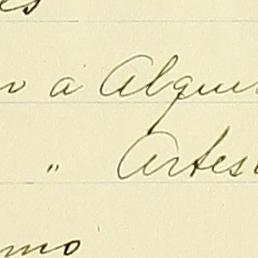 es
a Alque
" Artes
mo